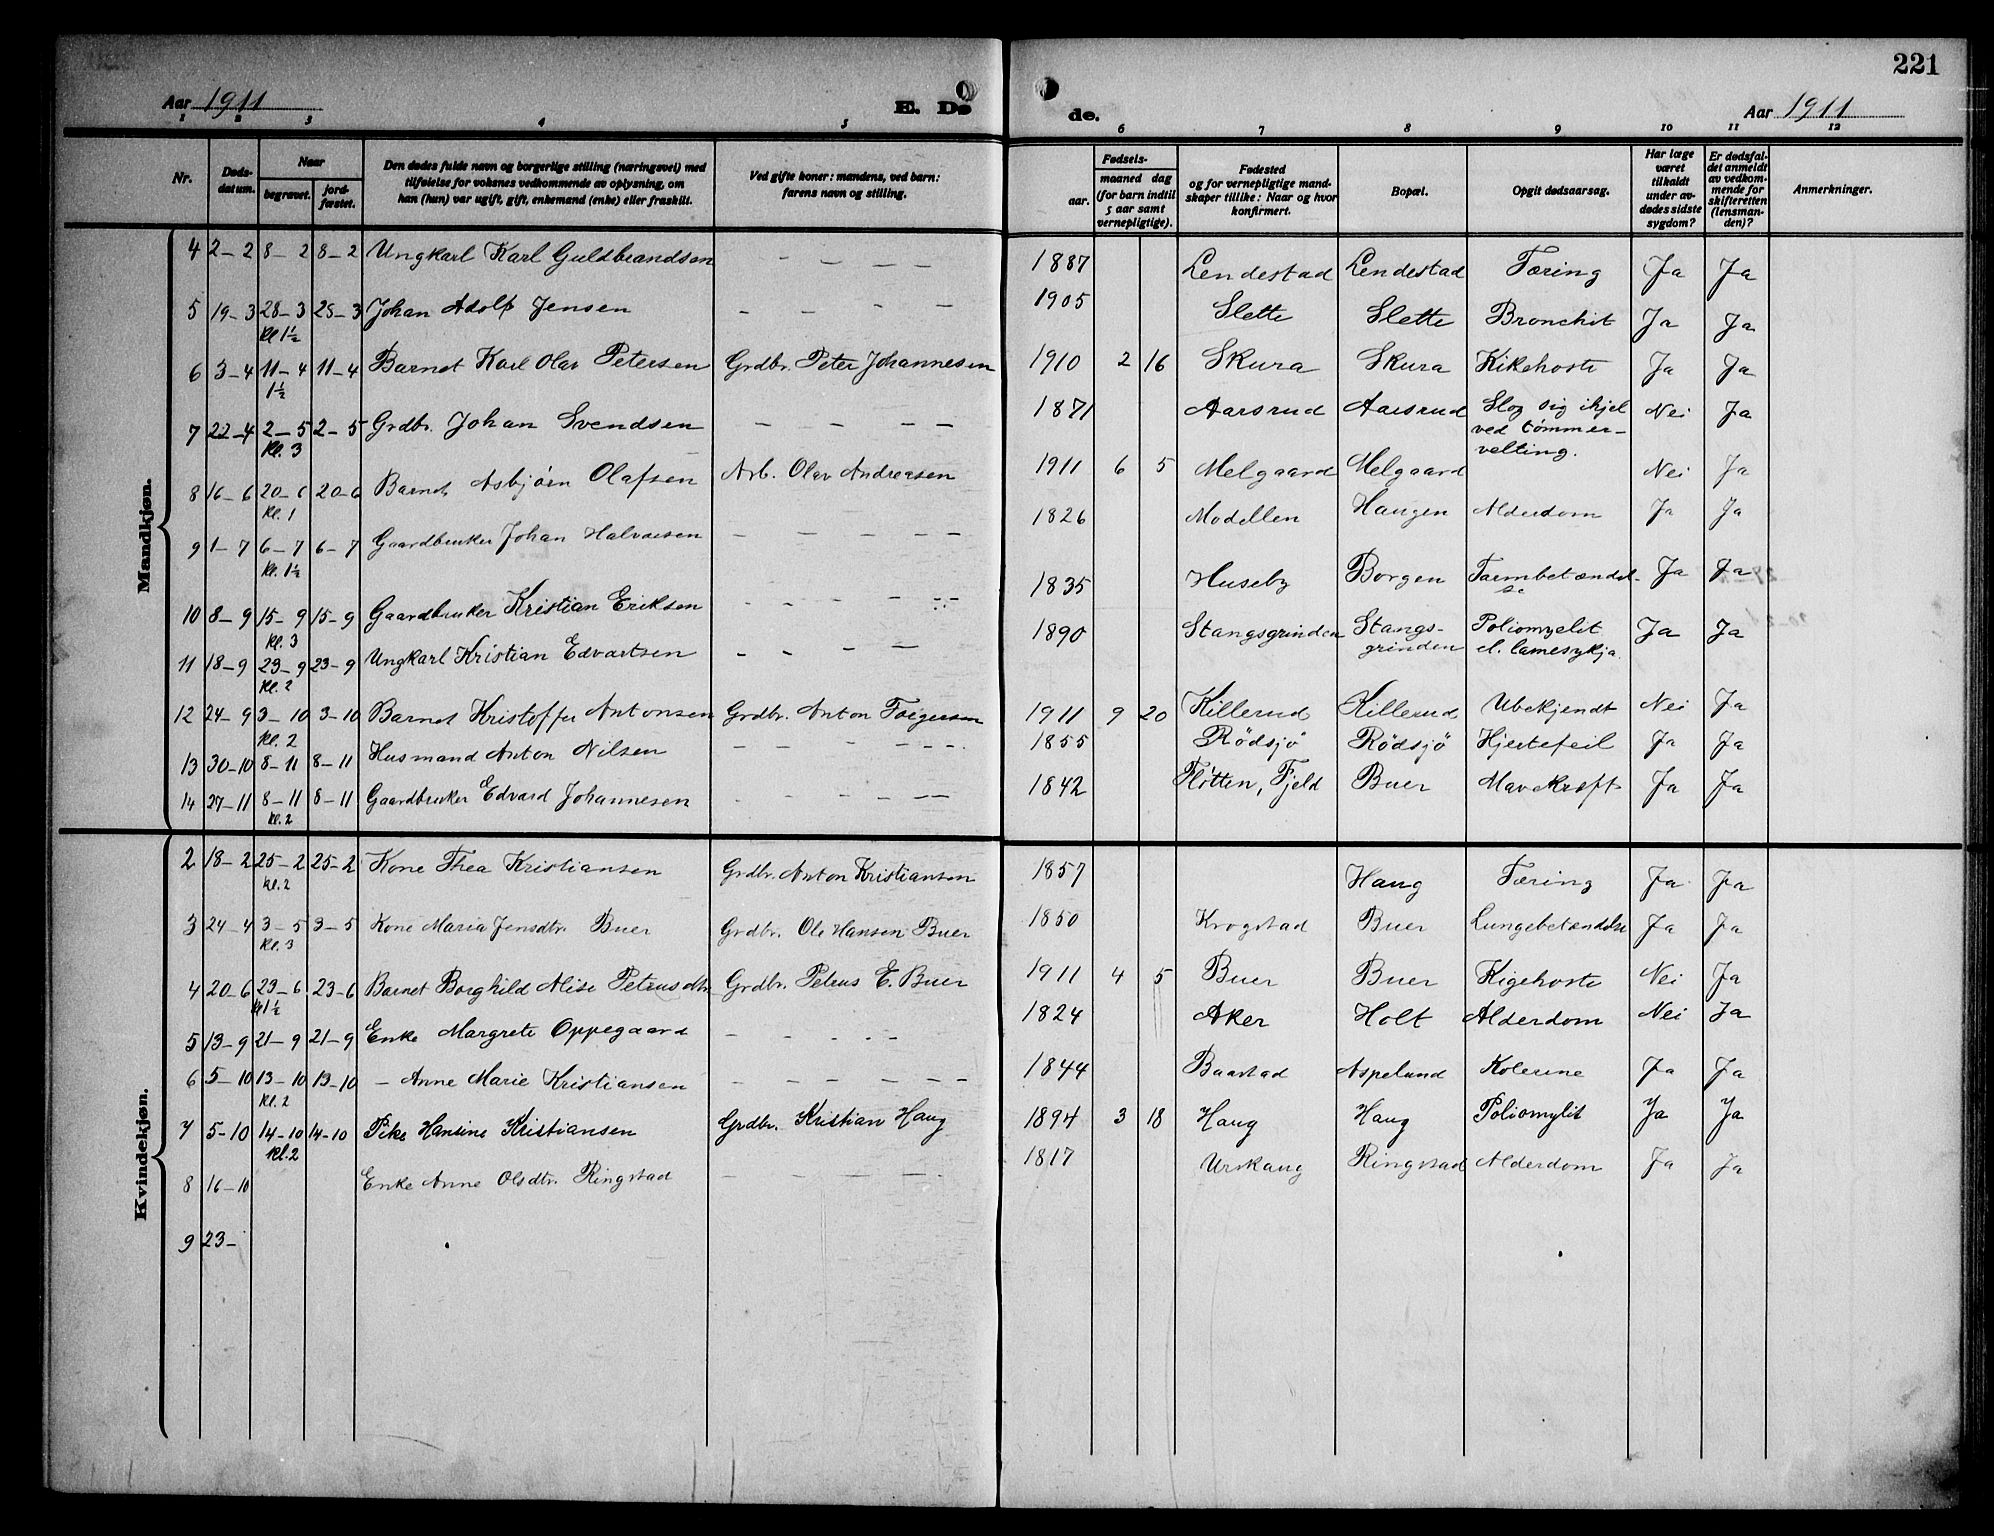 221
Aar 1911
E. Dø
de.
Aar 1911
1 2 3 4 5 6 7 8 9 10 11 12
Nr.
Døds-
datum.
Naar
begravet.
jord-
fæstet.
Den dødes fulde navn og borgerlige stilling (næringsvei) med
tilføielse for voksnes vedkommende av oplysning, om
han (hun) var ugift, gift, enkemand (enke) eller fraskilt.
Ved gifte koner: mandens, ved barn:
farens navn og stilling.
Fødsels-
aar.
maaned dag
(for barn indtil
5 aar samt
vernepligtige).
Fødested
og for vernepligtige mand-
skaper tillike: Naar og hvor
konfirmert.
Bopæl.
Opgit dødsaarsag.
Har læge
været
tilkaldt
under av-
dødes sidste
sygdom?
Er dødsfal-
det anmeldt
av vedkom-
mende for
skifteretten
(lensman-
den)?
Anmerkninger.
Mandkjøn.
4 2-2 8-2 8-2 Ungkarl Karl Guldbrandsen - - - - 1887 Lendestad Lendestad Tæring Ja Ja
5 19-3 28-3 25-3 Johan Adolf Jensen - - - - 1905 Slette Slette Bronchit Ja Ja
Kl 1½
6 3-4 11-4 11-4 Barnet Karl Olav Petersen Grdbr. Peter Johannesen 1910 2 16 Skura Skura Kikehoste Ja Ja
1½
7 22-4 2-5 2-5 Grdbr. Johan Svendsen - - - - 1871 Aarsrud Aarsrud Slog sig ihjel Nei Ja
Kl. 3 ved tømmer-
velting.
8 16-6 20-6 20-6 Barnet Asbjørn Olafsen Arb. Olav Andreasen 1911 6 5 Melgaard Melgaard Nei Ja
Kl. 1
9 1-7 6-7 6-7 Gaardbruker Johan Halvorsen - - - - - 1826 Modellen Haugen Alderdom Ja Ja
Kl. 1½
10 8-9 15-9 15-9 Gaardbruker Kristian Eriksen - - - - - 1835 Huseby Borgen Tarmbetændel- Ja Ja
Kl. 3 se
11 18-9 23-9 23-9 Ungkarl Kristian Edvartsen - - - - 1890 Stangsgrinden Stangs- Poliomyelit Ja Ja
Kl. 2 grinden el. lamesykja.
12 24-9 3-10 3-10 Barnet Kristoffer Antonsen Grdbr. Anton 1911 9 20 Killerud Killerud Ubekjendt Nei Ja
Kl. 2
13 30-10 8-11 8-11 Husmand Anton Nilsen - - - - - 1855 Rødsjø Rødsjø Hjertefeil Ja Ja
14 27-11 8-11 8-11 Gaardbruker Edvard Johannesen - - - - - 1842 Fløtten, Fjeld Buer Mavekræft Ja Ja
Kl. 2
Kvindekjøn.
2 18-2 25-2 25-2 Kone Thea Kristiansen Grdbr. Anton Kristiansen 1857 Haug Tæring Ja Ja
Kl. 2
3 24-4 3-5 3-5 Kone Maria Jensdtr. Buer Grdbr. Ole Hansen Buer 1850 Krogstad Buer Lungebetændelse Ja Ja
Kl. 3
4 20-6 23-6 23-6 Barnet Borghild Alise Petrusdtr Grdbr. Petrus E. Buer 1911 4 5 Buer Buer Kigehoste Nei Ja
Kl 1½
5 13-9 21-9 21-9 Enke Margrete Oppegaard - - - - 1824 Aker Holt Alderdom Nei Ja
6 5-10 13-10 13-10 - Anne Marie Kristiansen - - - - - 1844 Baastad Aspelund Kolerine Ja Ja
Kl. 2
7 5-10 14-10 14-10 Pike Hansine Kristiansen Grdbr. Kristian Haug 1894 3 18 Haug Haug Poliomylit Ja Ja
Kl. 2
8 16-10 Enke Anne Olsdtr. Ringstad - - - - 1817 Urskaug Ringstad Alderdom Ja Ja
9 23-